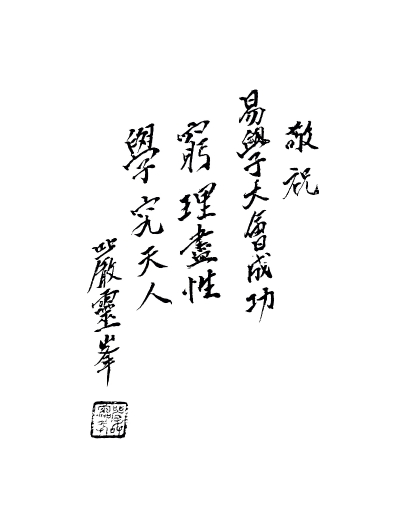 敬祝
易學大會成功
窮理盡性
學究天人
嚴靈峯